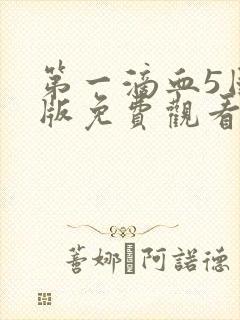 第一滴血5国
版免費觀看
蓍娜·阿諾德